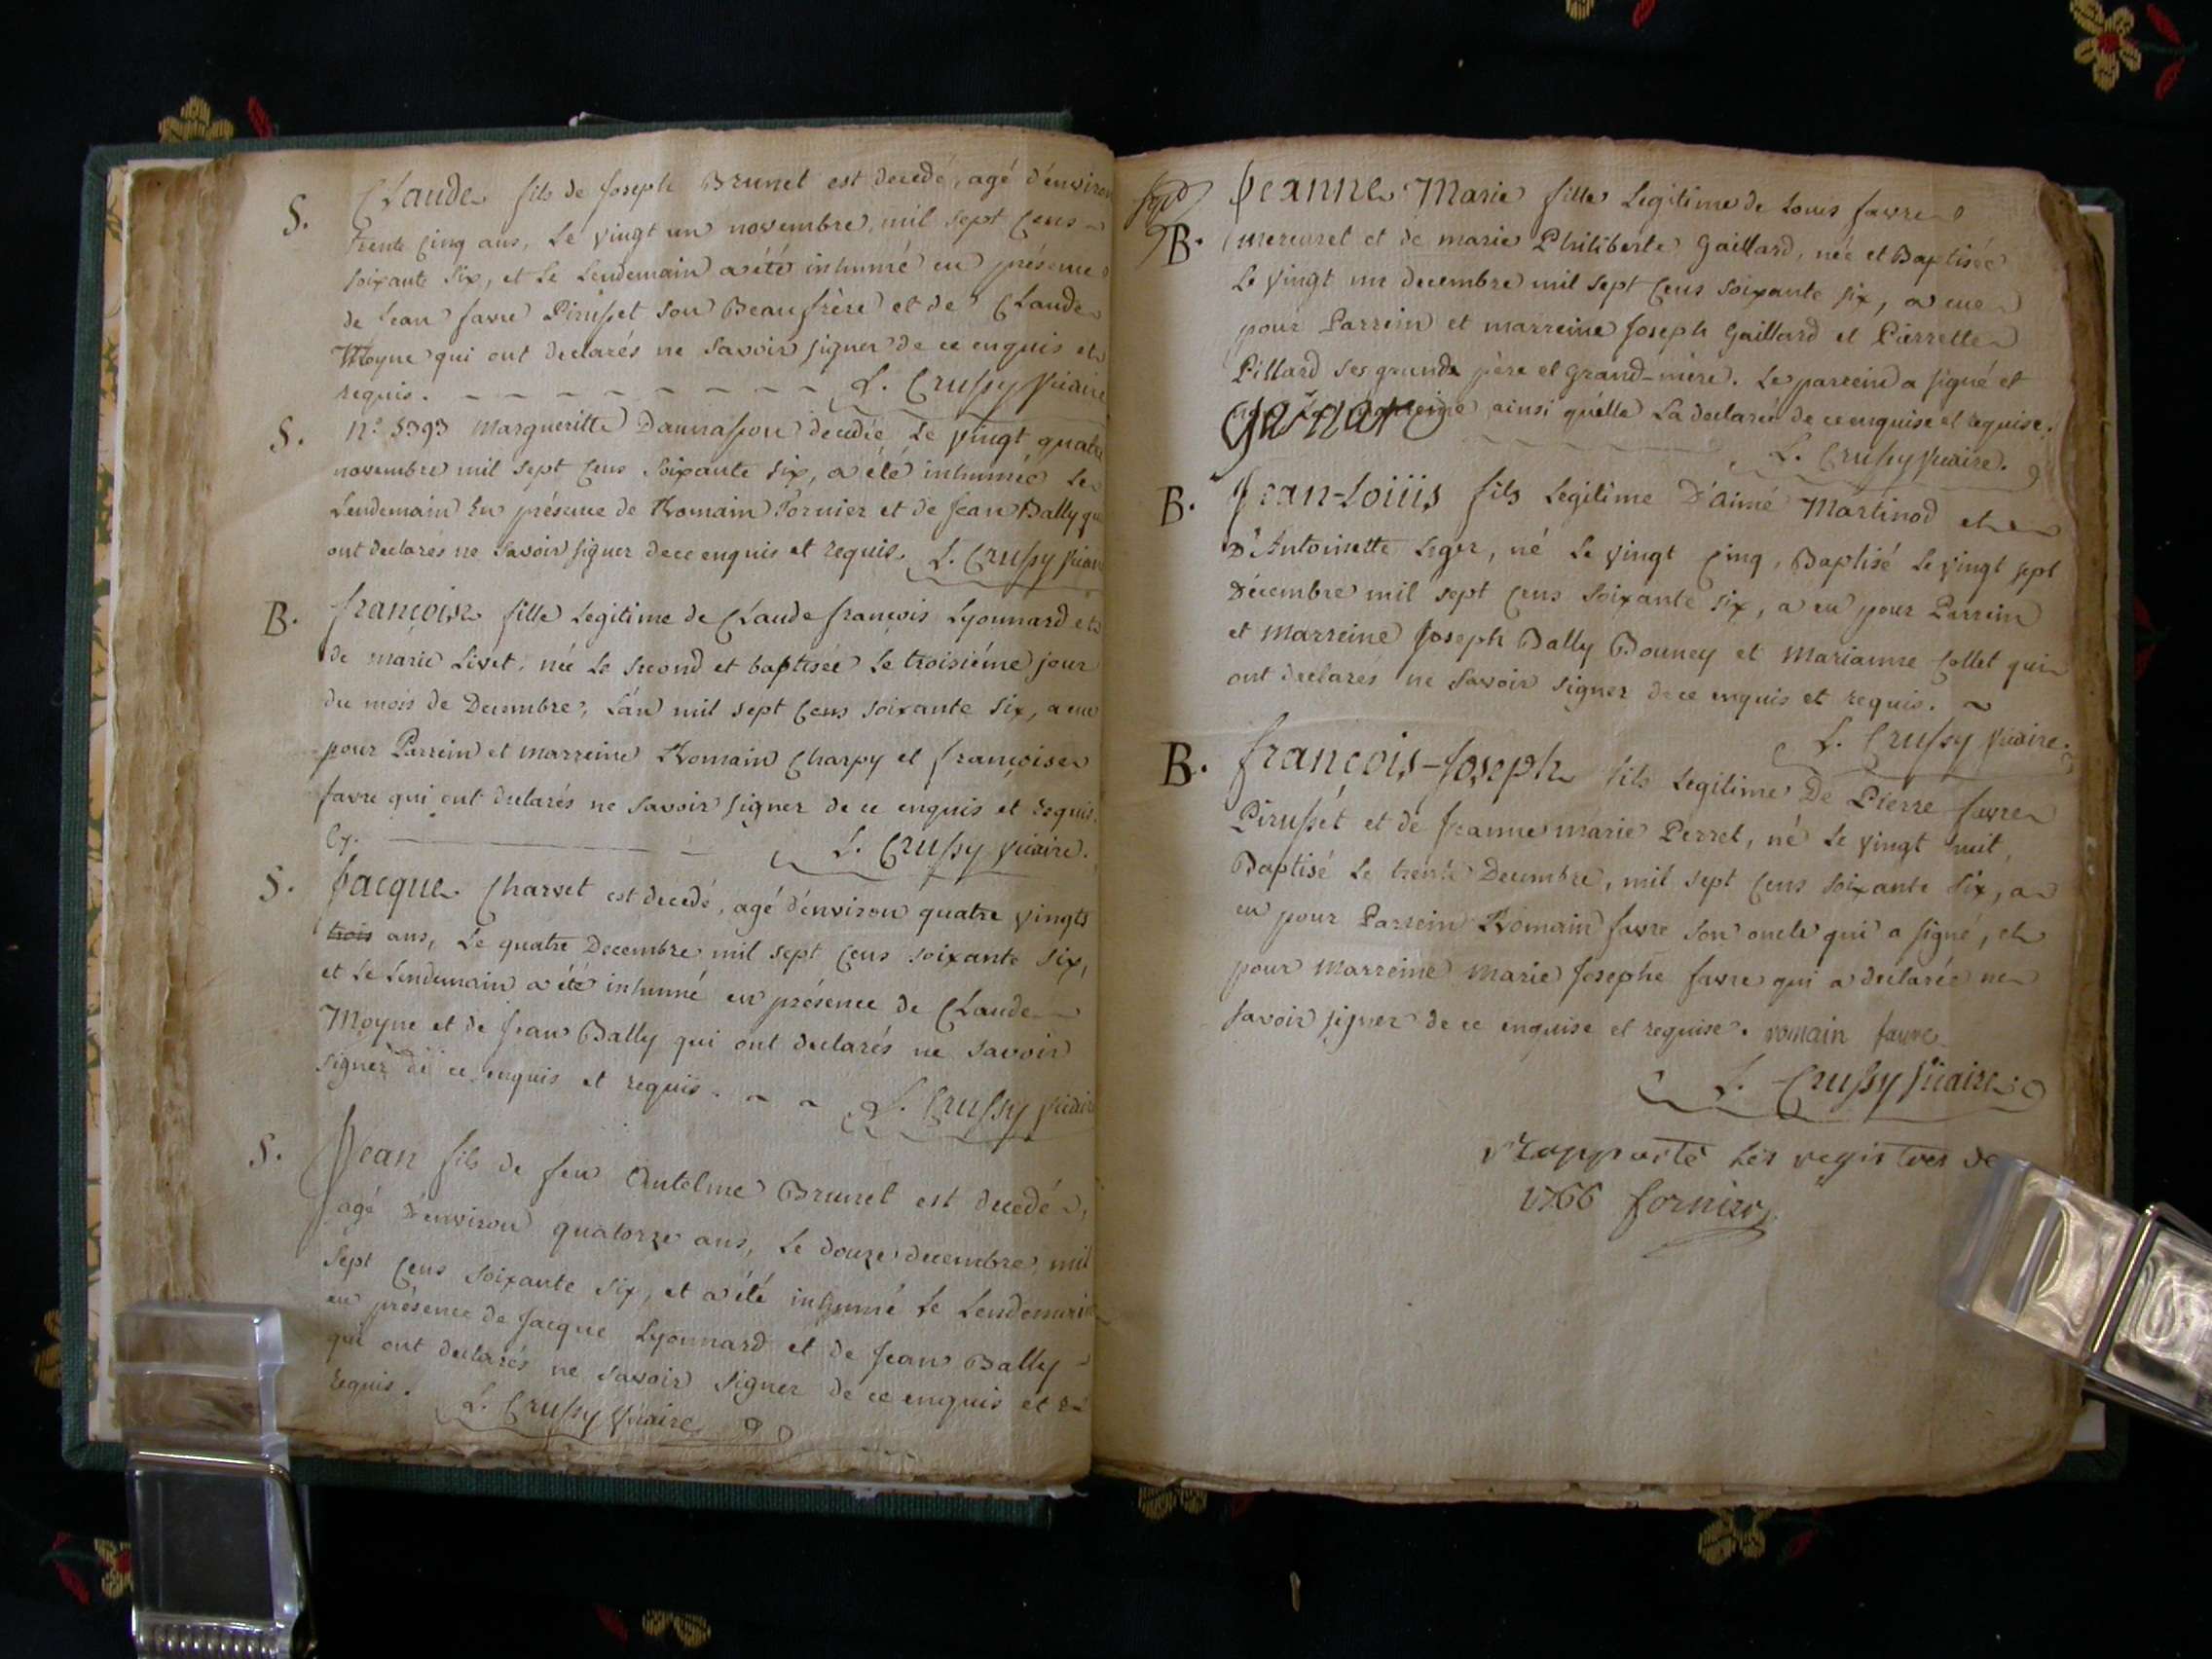 S. Claude fils de Joseph Brunet est decedé, agé d'environ
trente cinq ans, Le vingt un novembre, mil sept cens
soixante six, et Le Lendemain a été inhumé en présence
de Jean favre Pirusset son Beaufrère et de Claude
Moyne qui ont declarés ne savoir signer de ce enquis et
requis. L. Crussy vicaire
S. n.º 5393 Margueritte Dannasson decedée Le vingt quatre
novembre mil sept cens soixante six, a été inhumée Le
Lendemain En présence de Romain Fornier et de Jean Bally qui
ont declarés ne savoir signer de ce enquis et requis. L. Crussy vicaire
B. françoise fille Legitime de Claude françois Lyonnard et
de marie Livet, née Le second et baptisée Le troisiéme jour
du mois de Decembre, L'an mil sept cens soixante six, a eue
pour Parrein et marreine Romain Charpy et françoise
favre qui ont declarés ne savoir signer de ce enquis et requis.
L. Crussy vicaire.
S. Jacque Charvet est decedé, agé d'environ quatre vingts
trois ans, Le quatre Decembre mil sept cens soixante six,
et Le Lendemain a été inhumé en présence de Claude
Moyne et de Jean Bally qui ont declarés ne savoir
signer de ce enquis et requis. L. Crussy vicaire
S. Jean fils de feu Antelme Brunet est decedé,
agé d'environ quatorze ans, Le douze decembre, mil
sept cens soixante six, et a été inhumé Le Lendemain
en présence de Jacque Lyonnard et de Jean Bally
qui ont declarés ne savoir signer de ce enquis et re
requis. L. Crussy vicaire
Jeanne Marie fille Legitime de Louis favre
B. mercuret et de marie Philiberte Gaillard, née et Baptisée
Le vingt un decembre mil sept cens soixante six, a eue
pour Parrein et marreine Joseph Gaillard et Pierrette
Pillard ses grands père et grand-mère. Le parrein a signé et
ainsi qu'elle La declarée de ce enquise et requise.
L. Crussy vicaire.
B. Jean-Loüis fils Legitime D'aimé Martinod et
D'Antoinette Leger, né Le vingt cinq, Baptisé Le vingt sept
Décembre mil sept cens soixante six, a eu pour Parrein
et marreine Joseph Bally Bouney et Marianne Collet qui
ont declarés ne savoir signer de ce enquis et requis.
L. Crussy vicaire.
B. françois-Joseph fils Legitime De Pierre favre
Pirussét et de Jeanne marie Perret, né Le vingt huit,
Baptisé Le trente Decembre, mil sept cens soixante six, a
eu pour Parrein Romain favre son oncle qui a signé, et
pour marreine marie Josephe favre qui a declarée ne
savoir signer de ce enquise et requise. romain favre
L. Crussy vicaire
Rapporté Les registres de
1766 fornier